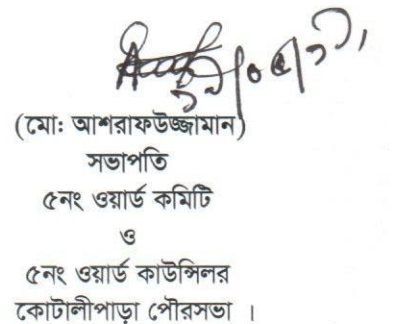 (মো: আশরাফউজ্জামান)
সভাপতি
৫নং ওয়ার্ড কমিটি
ও
৫নং ওয়ার্ড কাউন্সিলর
কোটালীপাড়া পৌরসভা ।